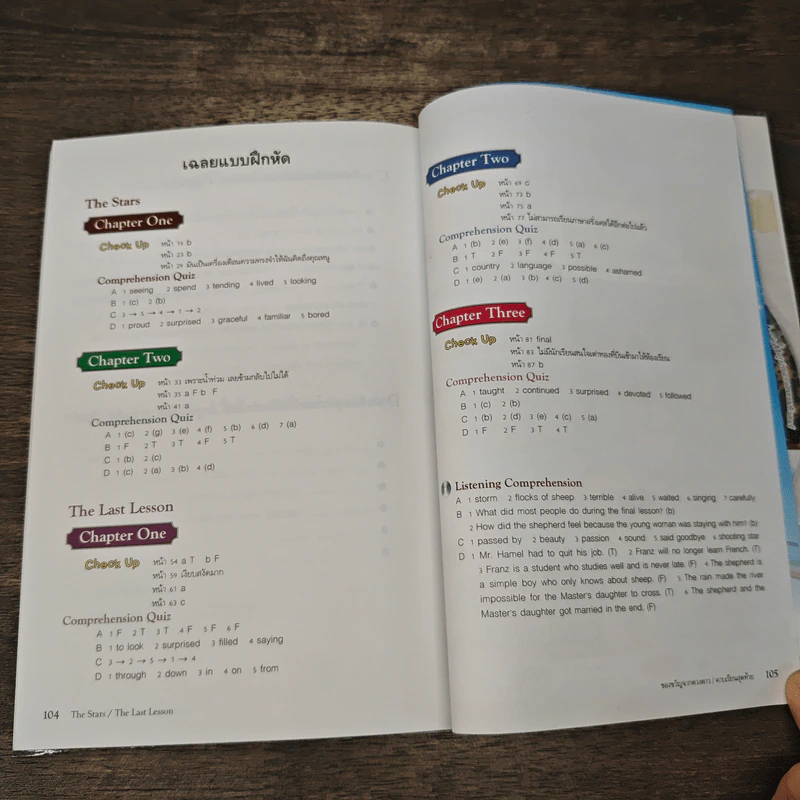 เฉลยแบบฝึกหัด
The Stars
Chapter One
Check Up หน้า 19 b
หน้า 23 b
หน้า 24 มันเป็นเครื่องเตือนความทรงจำให้ฉันคิดถึงคุณหนู
Comprehension Quiz
A 1 seeing 2 spend 3 tending 4 lived 5 looking
B 1 (c) 2 (b)
C 3 → 5 → 4 → 1 → 2
D 1 proud 2 surprised 3 graceful 4 familiar 5 bored
Chapter Two
Check Up หน้า 33 เพราะน้ำท่วม เลยข้ามกลับไปไม่ได้
หน้า 35 a F b F
หน้า 41 a
Comprehension Quiz
A 1 (c) 2 (g) 3 (e) 4 (f) 5 (b) 6 (d) 7 (a)
B 1 F 2 T 3 T 4 F 5 T
C 1 (b) 2 (c)
D 1 (c) 2 (a) 3 (b) 4 (d)
The Last Lesson
Chapter One
Check Up หน้า 54 a T b F
หน้า 59 เงียบสงัดมาก
หน้า 61 a
หน้า 63 c
Comprehension Quiz
A 1 F 2 T 3 T 4 F 5 F 6 F
B 1 to look 2 surprised 3 filled 4 saying
C 3 → 2 → 5 → 1 → 4
D 1 through 2 down 3 in 4 on 5 from
104 The Stars / The Last Lesson
Chapter Two
Check Up หน้า 69 c
หน้า 73 b
หน้า 75 a
หน้า 77 ไม่สามารถเรียนภาษาฝรั่งเศสได้อีกต่อไปแล้ว
Comprehension Quiz
A 1 (b) 2 (e) 3 (f) 4 (d) 5 (a) 6 (c)
B 1 T 2 F 3 F 4 F 5 T
C 1 country 2 language 3 possible 4 ashamed
D 1 (e) 2 (a) 3 (b) 4 (c) 5 (d)
Chapter Three
Check Up หน้า 81 final
หน้า 83 ไม่มีนักเรียนสนใจเต่าทองที่บินเข้ามาให้ห้องเรียน
หน้า 87 b
Comprehension Quiz
A 1 taught 2 continued 3 surprised 4 devoted 5 followed
B 1 (c) 2 (b)
C 1 (b) 2 (d) 3 (e) 4 (c) 5 (a)
D 1 F 2 F 3 T 4 T
Listening Comprehension
A 1 storm 2 flocks of sheep 3 terrible 4 alive 5 waited 6 singing 7 carefully
B 1 What did most people do during the final lesson? (b)
2 How did the shepherd feel because the young woman was staying with him? (b)
C 1 passed by 2 beauty 3 passion 4 sound 5 said goodbye 6 shooting star
D 1 Mr. Hamel had to quit his job. (T) 2 Franz will no longer learn French. (T)
3 Franz is a student who studies well and is never late. (F) 4 The shepherd is
a simple boy who only knows about sheep. (F) 5 The rain made the river
impossible for the Master's daughter to cross. (T) 6 The shepherd and the
Master's daughter got married in the end. (F)
ของขวัญจากดวงดาว / คาบเรียนสุดท้าย 105